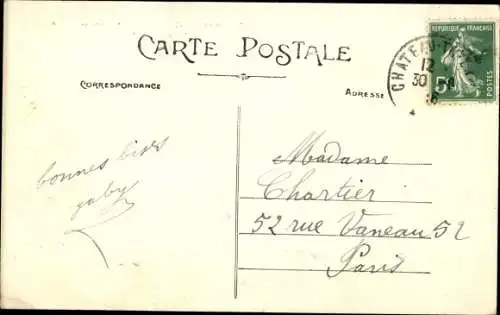 CARTE POSTALE
CORRESPONDANCE
ADRESSE
RÉPUBLIQUE FRANÇAISE
5c
POSTES
CHÂTEAU-
12
30
bonnes bises
gaby
Madame
Chartier
52 rue Vaneau 52
Paris